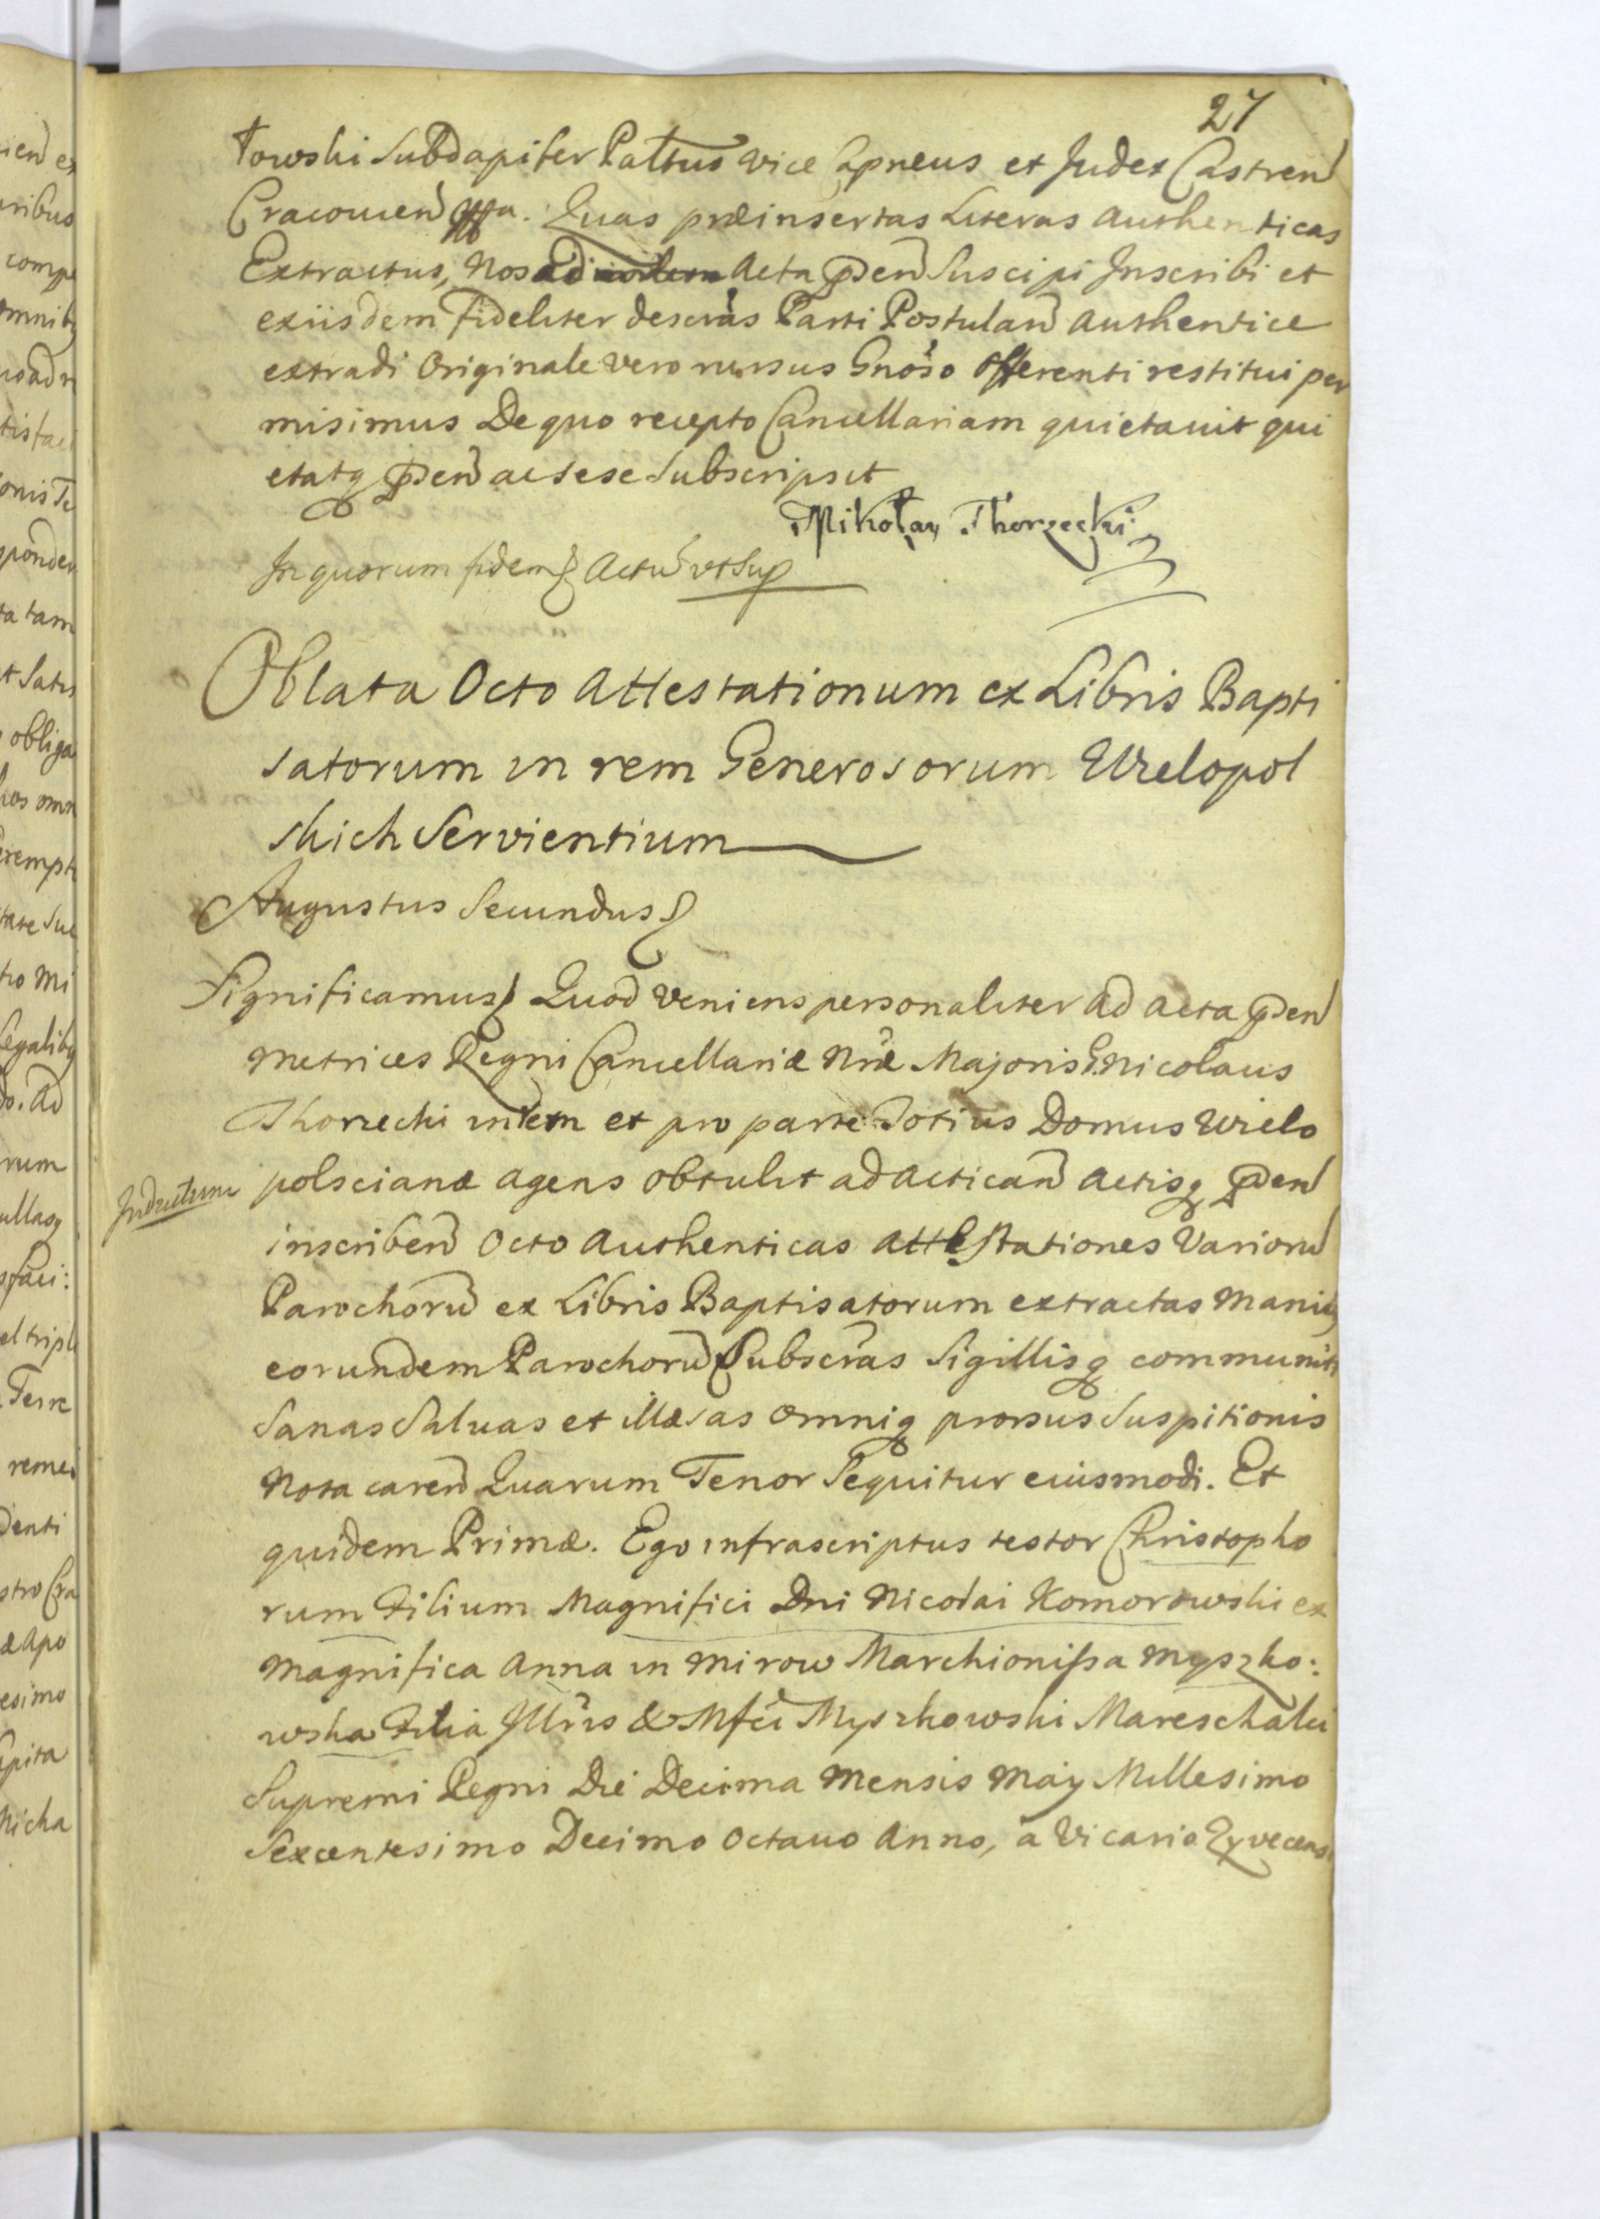 27
towski Subdapifer Palttus Vice Capneus et Judex Castren
Cracovien mpa. Quas præinsertas Literas Authenticas
Extractus, Nos ad Acta pden Suscipi Inscribi et
exiisdem fideliter descrās Parti Postulan Authentice
extradi Originale vero rursus Gnoso Offerenti restitui per
misimus De quo recepto Cancellariam quietavit qui
etatq pden ac sese Subscripsit
Mikołay Thorzecki
In quorum fidem Actū vt Sup
Oblata Octo Attestationum ex Libris Bapti
satorum in rem Generosorum Wielopol
skich Servientium
Augustus Secundus
Significamus Quod veniens personaliter ad acta pden
Metrices Regni Cancellariæ Nræ Majoris G. Nicolaus
Thorzecki et pro parte Totius Domus Wielo
polscianæ agens obtulit ad actican actisq pden
Inductum
inscriben Octo Authenticas Attestationes Variorū
Parochorū ex Libris Baptisatorum extractas Manibq
eorundem Parochorū Subscrās Sigillisq communit
Sanas Salvas et illæsas Omniq prorsus Suspitionis
Nota caren Quarum Tenor Sequitur eiusmodi. Et
quidem Primæ. Ego infrascriptus testor Christopho
rum Filium Magnifici Dni Nicolai Komorowski ex
Magnifica Anna in Mirow Marchionissa Myszko:
wska Filia Jllris & Mfci Myszkowski Mareschalci
Supremi Regni Die Decima Mensis Maij Millesimo
Sexcentesimo Decimo Octavo Anno, a Vicario Zyvecens